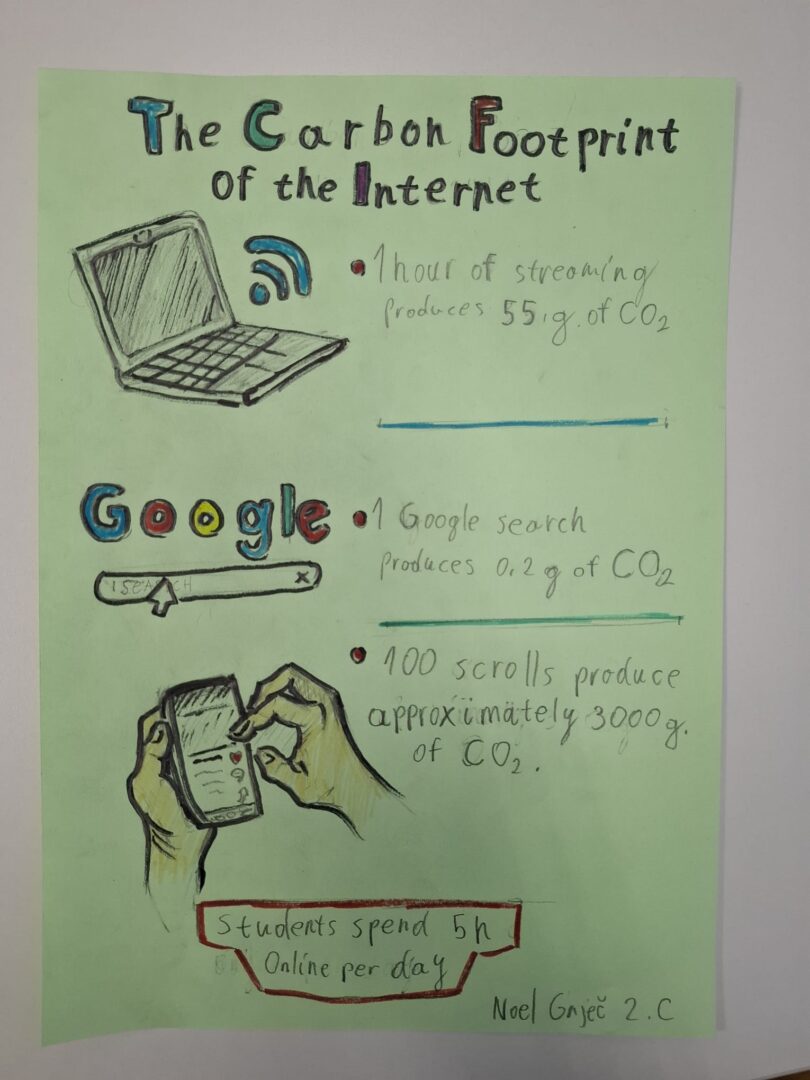 The Carbon Footprint
of the Internet
1 hour of streaming
produces 55 g. of CO₂
Google
SEARCH x
1 Google search
produces 0.2 g of CO₂
100 scrolls produce
approximately 3000 g.
of CO₂.
Students spend 5h
Online per day
Noel Gnječ 2.C